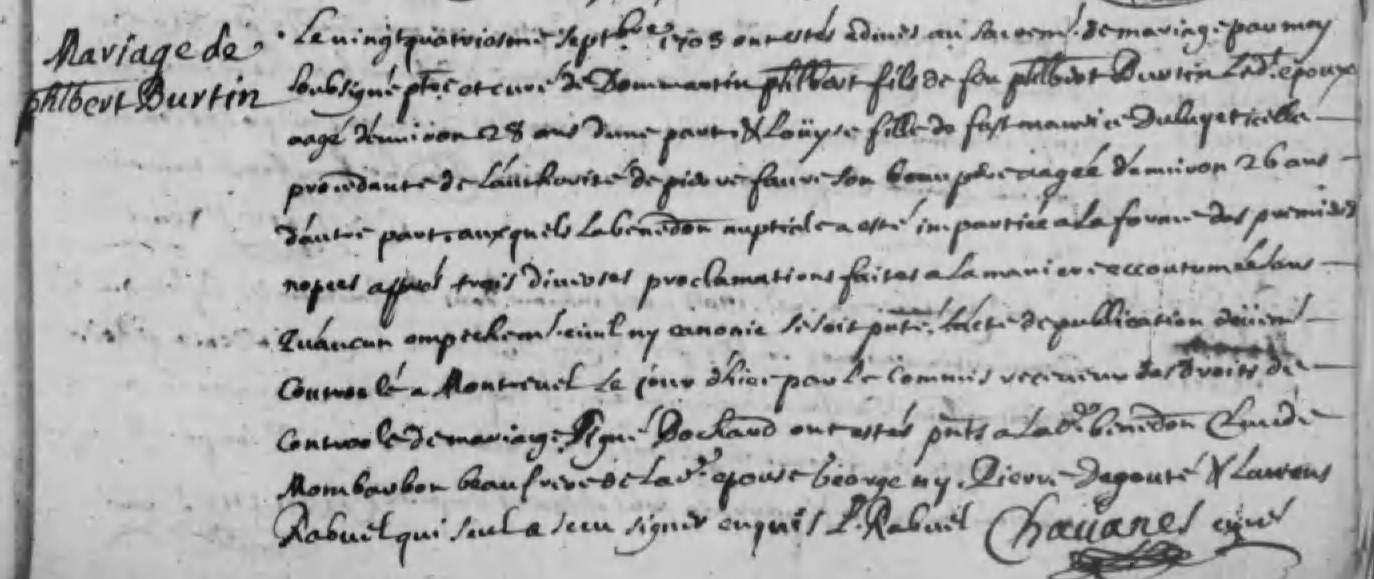 Mariage de
phlbert Burtin
Le vingtquatriesme septbre 1708 ont estés admis au sacremt. de mariage par moy
soubsigné ptre et curé de Dommartin phlbert fils de feu phlbert Burtin led. époux
aagé d'environ 28 ans d'une part & Loüyse fille de fust maurice icelle
procedante de l'authorité de pierre favre son beau père aagée d'environ 26 ans
d'autre part auxquels la benedon nuptiale a esté impartiée a la forme des premieres
nopces après trois diverses proclamations faites a la maniere accoutumée sans
qu'aucun empechemt. civil ny canonic se soit pnté, l'acte de publication düemt
Controolé a Montrevel le jour d'hier par le Commis receveur des droits de
Controole de mariage signé Bochard ont estés pnts a lad. benedon Claude
Mombarbon beau frère de lad. epouse George ny, Pierre Degouté & Laurens
Rabuel qui seul a sceu signer enquis L. Rabuel Chavanes curé